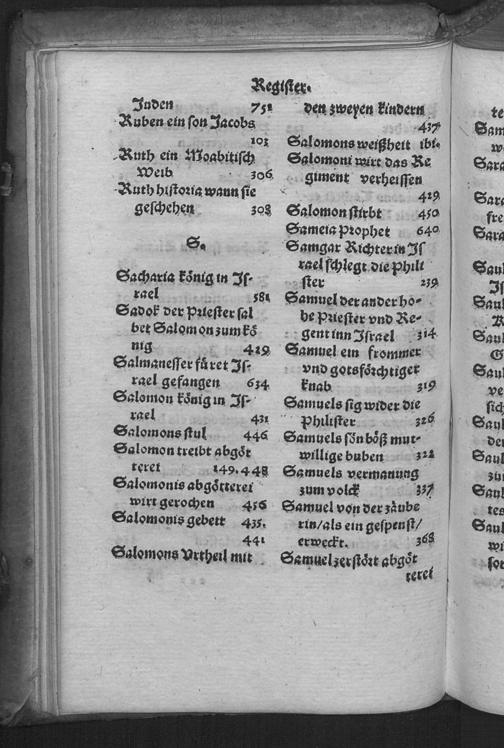 Register.
Juden 751
Ruben ein son Jacobs
101
Ruth ein Moabitisch
Weib 306
Ruth historia wann sie
geschehen 308
S.
Sacharia König in Is-
rael 581
Sadok der Priester sal
bet Salomon zum Kö
nig 429
Salmanesser füret Is-
rael gefangen 634
Salomon König in Is-
rael 431
Salomons stul 446
Salomon treibt abgöt
terei 149.448
Salomonis abgötterei
wirt gerochen 456
Salomonis gebett 435.
441
Salomons Vrtheil mit
den zweyen kindern
437
Salomons weißheit ibi.
Salomoni wirt das Re
giment verheissen
429
Salomon stirbt 450
Sameia Prophet 640
Samgar Richter in Is
rael schlegt die Phili
ster 239
Samuel der ander ho-
he Priester vnd Re-
gent inn Israel 314
Samuel ein frommer
vnd gotsförchtiger
knab 319
Samuels sig wider die
Philister 326
Samuels sön böß mut-
willige buben 322
Samuels vermanung
zum volck 337
Samuel von der zäube
rin/als ein gespenst/
erweckt. 368
Samuel zerstört abgöt
terei